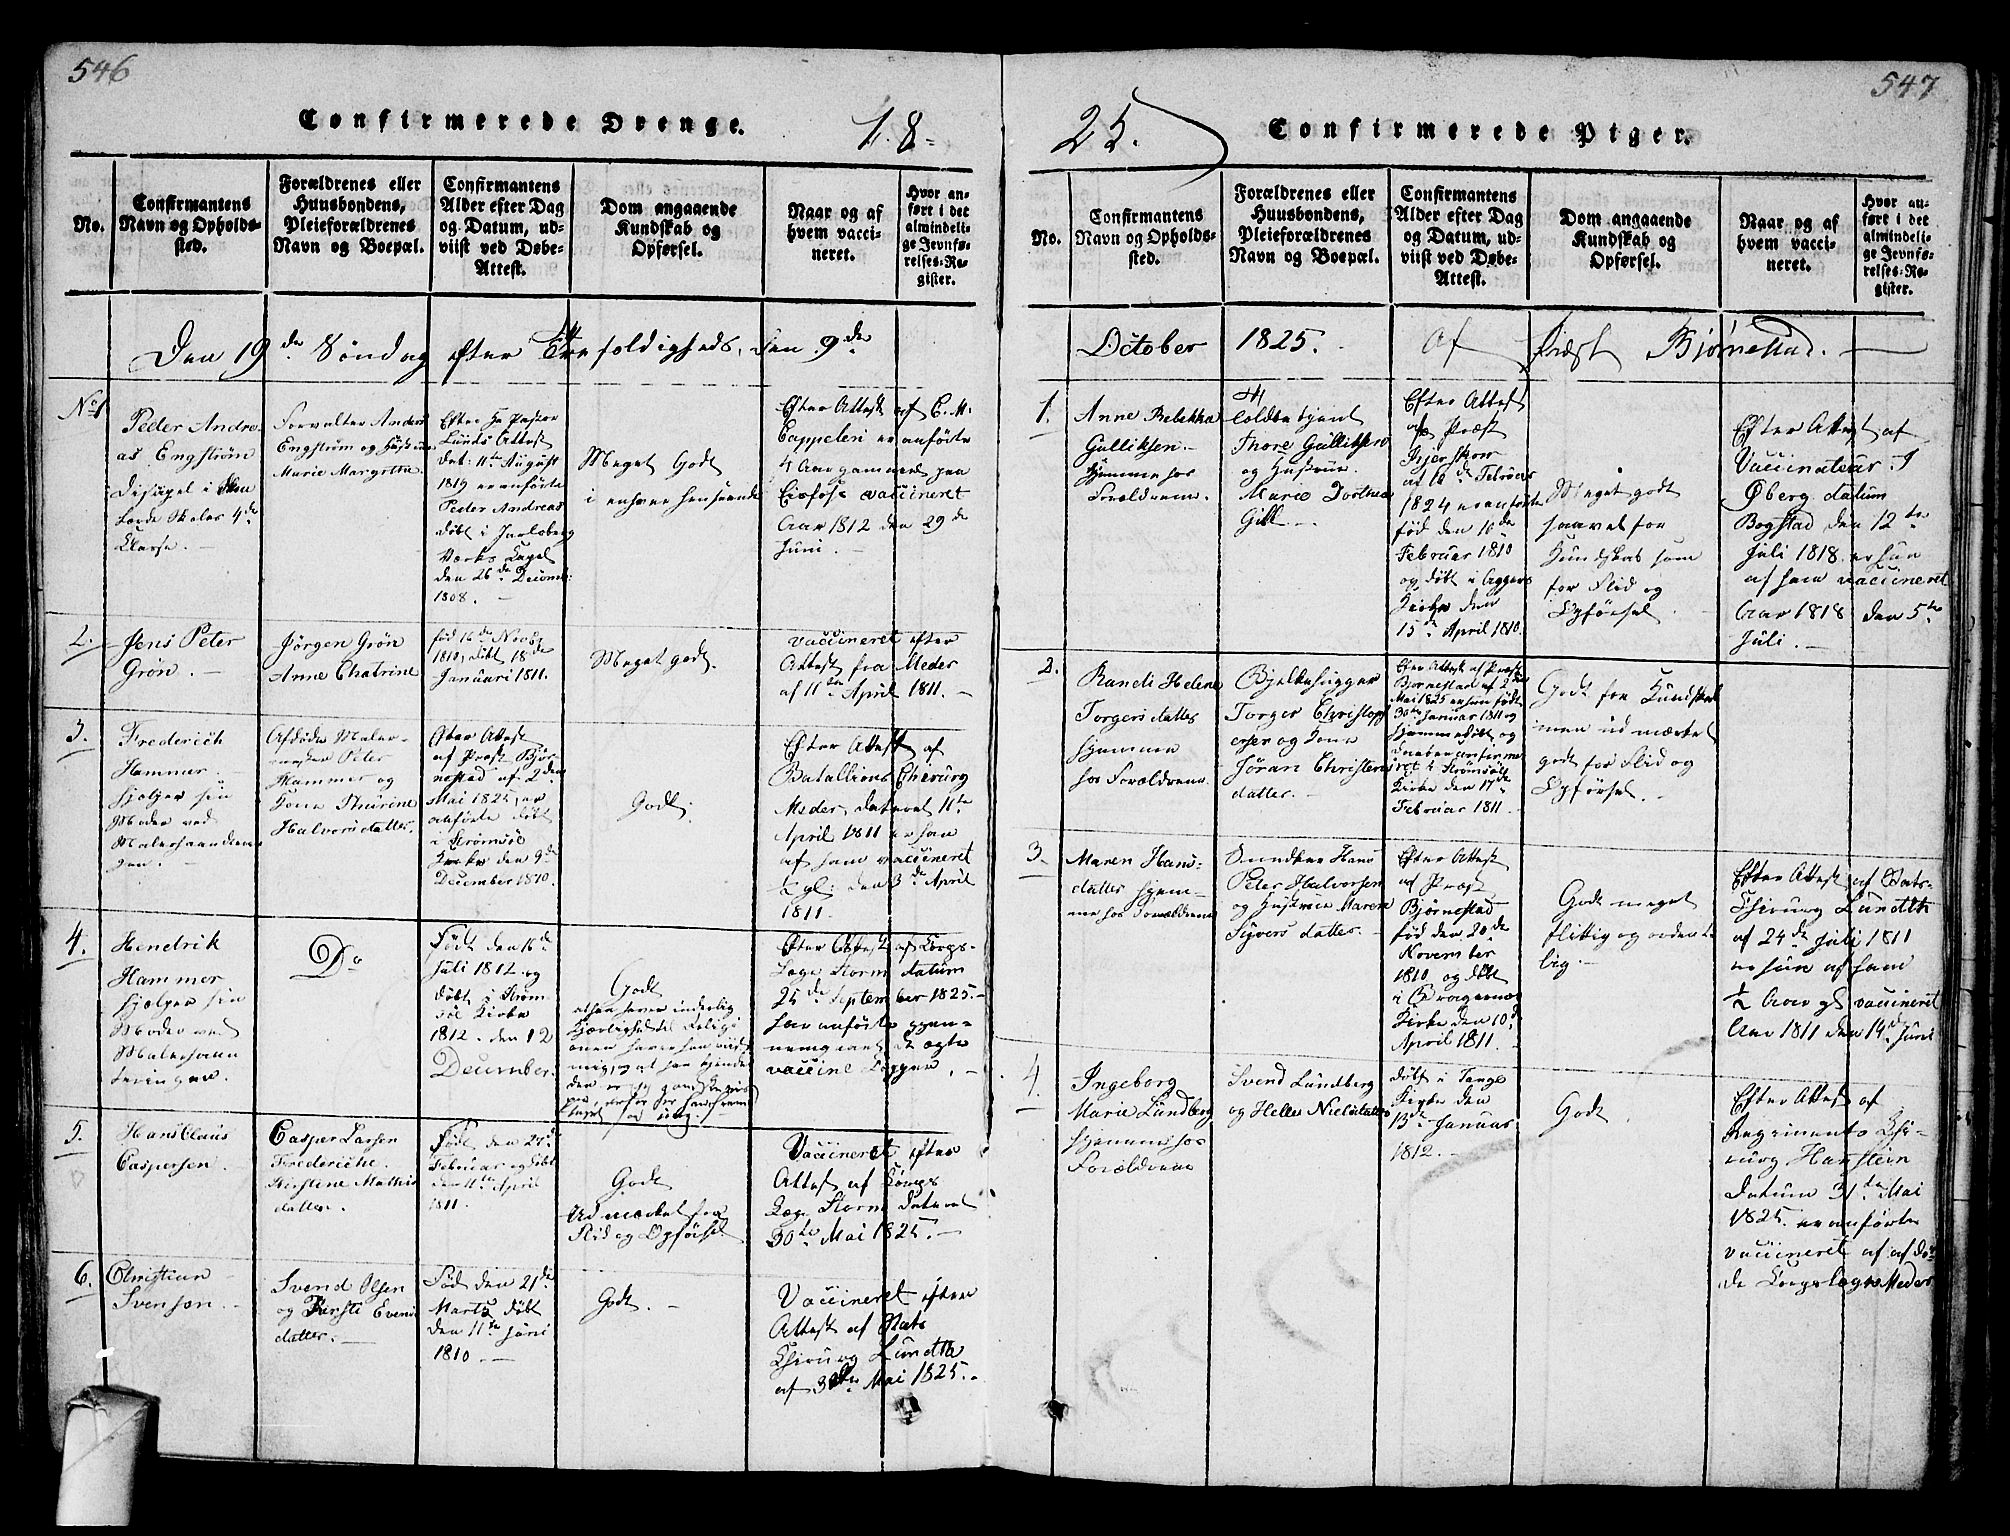 546
Confirmerede Drenge.
18
No.
Confirmantens
Navn og Opholds-
sted.
Forældrenes eller
Huusbondens,
Pleieforældrenes
Navn og Boepæl.
Confirmantens
Alder efter Dag
og Datum, ud-
viist ved Døbe-
Attest.
Dom angaaende
Kundskab og
Opførsel.
Naar og af
hvem vacci-
neret.
Hvor an-
ført i det
almindeli-
ge Jevnfø-
relses-Re-
gister.
Den 19de Søndag efter Trefoldigheds, den 9de
No 1
Peder Andre-
as Engstrøm
Discipel i
Lærde Skoles 4de
Classe.
Forvalter Anders
Engstrøm og Hustrue
Marie Margrethe
Efter Hr Pastor
Lunds Attest
dat: 11te August
1819 er anførte
Peder Andreas
døbt i Jarlsberg
Værks Capel
den 26de Decemb:
1808.
Meget Godt
i enhver henseende
Efter Attest af C. M.
Cappelen er anførte
4 Aar gammel paa
Eidfos vaccineret
Aar 1812 den 29de
Juni.
2.
Jens Peter
Grøn.
Jørgen Grøn
Anne Chatrine
fød 16de Novbr
1810, døbt 18de
Januari 1811.
Meget godt.
vaccineret efter
Attest fra Meder
af 11te April 1811.
3.
Frederich
Hammer
hjelper sin
Moder ved
Afdøde Maler-
mester Peter
Hammer og
Kone Thurine
Halvorsdatter.
Efter Attest
af Præst Bjør-
nestad af 2den
Mai 1825, er
anførte døbt
i Strømsöe
Kirke den 9de
December 1810.
Godt.
Efter Attest af
Batallions Chirurg
Meder, dateret 11te
April 1811 er han
af ham vaccineret
den 3de April
1811.
4.
Hendrik
Hammer
hjelper sin
Moder ved
Do
Født den 16de
Juli 1812 og
døbt i Strøm-
söe Kirke
1812. den 12
December.
Godt
Efter Attest af Corps-
Læge Storm datum
25de September 1825.
har anførte gjen-
nemgaaet de ægte
vaccine Kopper.
5.
Hans Claus
Caspersen.
Casper Larsen
Frederiche
Kirstine Mathis-
datter.
Født den
Februar og døbt
den 11te April
1811.
Godt
Udmærket for
Flid og Opførsel
Vaccineret efter
Attest af Corps
Læge Storm dateret
30te Mai 1825.
6.
Christian
Svensøn.
Svend Olsen
og Kirsti Evens-
datter.
Fød den 21de
Marts døbt
den 11te Juni
1810.
Godt.
Vaccineret efter
Attest af Stats
Chirurg Lundth
af Mai 1825.
547
25.
Confirmerede Piger.
No.
Confirmantens
Navn og Opholds-
sted.
Forældrenes eller
Huusbondens,
Pleieforældrenes
Navn og Boepæl.
Confirmantens
Alder efter Dag
og Datum, ud-
viist ved Døbe-
Attest.
Dom angaaende
Kundskab og
Opførsel.
Naar og af
hvem vacci-
neret.
Hvor an-
ført i det
almindeli-
ge Jevnfø-
relses-Re-
gister.
October 1825. Af Præst Bjørnestad.
1.
Anne Rebekka
Gulliksen.
hjemme hos
Forældrene.
Toldbetjent
Thore Gulliksen
og Hustrue
Marie Dorthea
Gill
Efter Attest
af Præst
1824 er anførte
fød den 16de
Februar 1810
og døbt i Aggers
Kirke den
15de April 1810.
Meget godt
saavel for
Kundskab som
for Flid og
Opførsel
Efter Attest af
Vaccinateur J
Øberg datum
Bogstad den 12te
Juli 1818 er hun
af ham vaccineret
Aar 1818 den 5te
Juli.
2.
Randi Helene
Torgersdatter
hjemme
hos Forældrene
Bjelkehugger
Torger Christoph-
ersen og Kone
Jøran Christens-
datter.
Efter Attest af Præst
Bjørnestad af 2den
Mai 1825 er hun født
30te Januar 1811 og
hjemmedøbt og
Daaben confirme-
ret i Strømsöe
Kirke den 17de
Februar 1811.
Godt for Kundskab
men udmærket
godt for Flid og
Opførsel.
3.
Maren Hans-
datter hjem-
me hos Forældrene
Snedker Hans
Peter Halvorsen
og Hustrue Maren
Syversdatter.
Efter Attest
af Præst
Bjørnestad
fød den 20de
November
1810 og døbt
i Bragernæs
Kirke den 10de
April 1811.
Godt meget
flittig og ordent-
lig.
Efter Attest af Stats-
Chirurg Lundth
af 24de Juli 1811
er hun af ham
1/2 Aar gl vaccineret
Aar 1811 den 14de Juni
4.
Ingeborg
Marie Lundberg
hjemme hos
Forældrene
Svend Lundberg
og Helle Nielsdatter
døbt i Tange
Kirke den
13de Januar
1812.
Godt
Efter Attest af
Regiments Chi-
rurg Hanstein
Datum 31te Mai
1825. er anførte
vaccineret af afdø-
de Corpslæge Meder